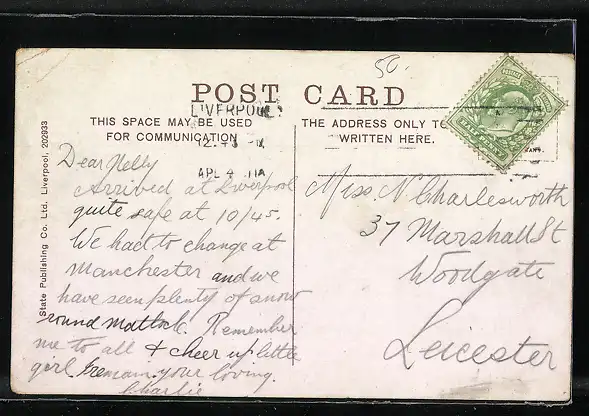 50.
POST CARD
LIVERPOOL
THIS SPACE MAY BE USED
FOR COMMUNICATION
12.45
APL 4 11A
THE ADDRESS ONLY TO
WRITTEN HERE.
HALFPENNY
State Publishing Co. Ltd. Liverpool, 202933
Dear Nelly
Arrived at Liverpool
quite safe at 10/45.
We had to change at
Manchester and we
have seen plenty of snow
round Matlock. Remember
me to all & cheer up little
girl. I remain your loving.
Charlie
Miss. N Charlesworth
37 Marshall St
Woodgate
Leicester